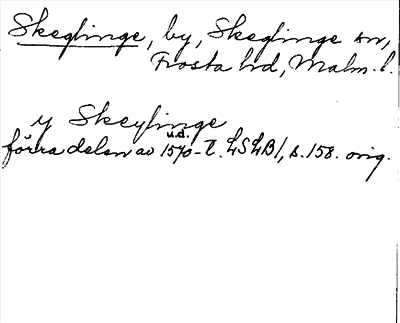 Skeglinge, by, Skeglinge sn,
Frosta hd, Malm. l.
y Skeylinge
u.d.
förra delen av 1570-t. LSLB1, s. 158. orig.